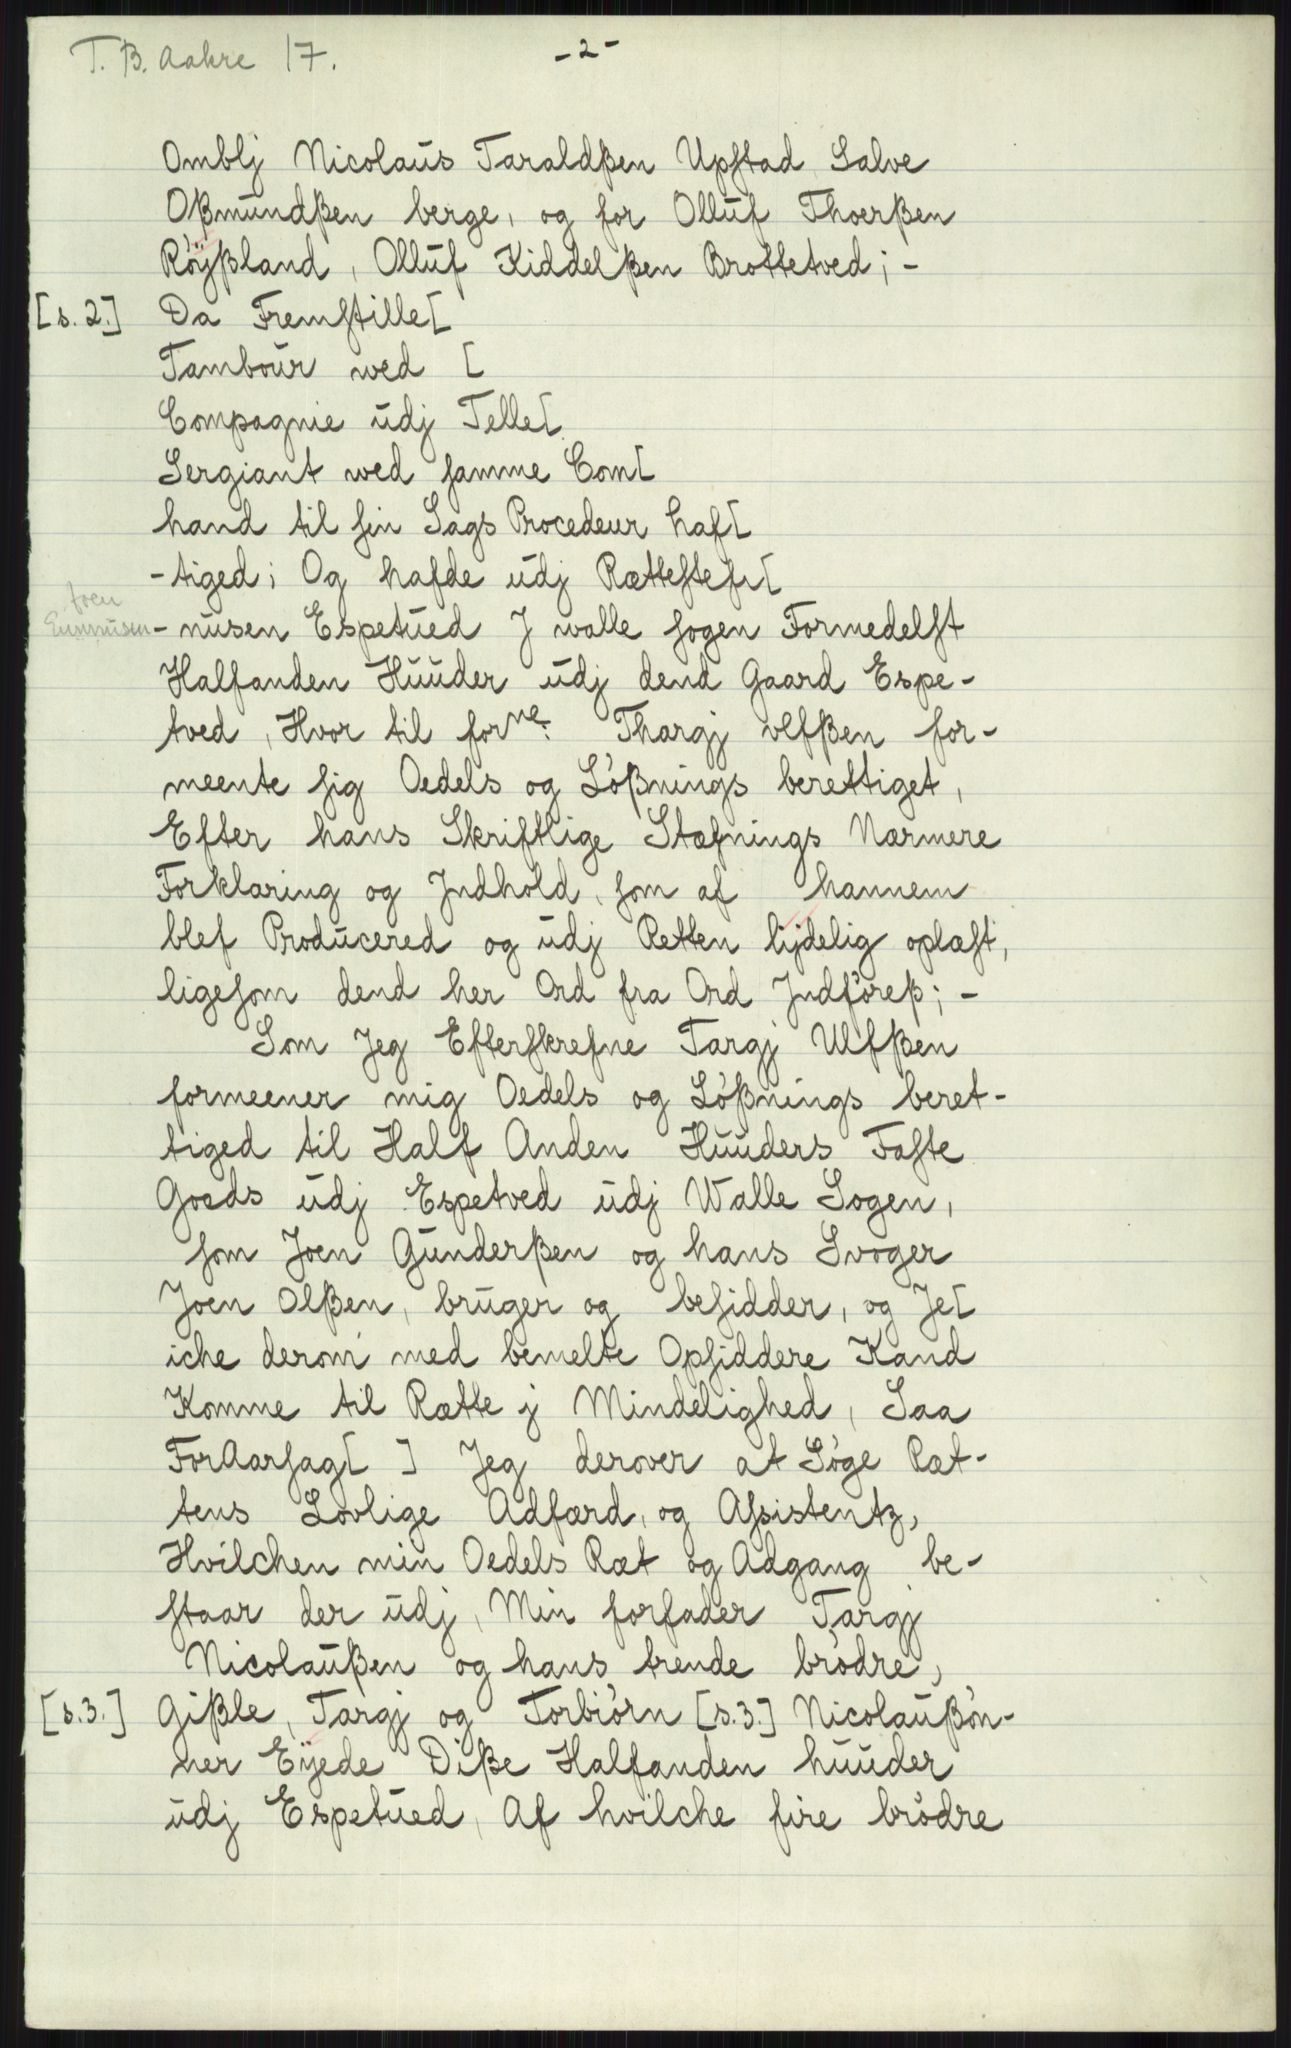 T. B. Aakre 17.
- 2 -
Omblj Nicolaus Taraldßen Upstad, Salve
Oßmundßen berge, og for Olluf Thoerßen
Röÿßland, Olluf Kiddelßen Brottetved; -
[s. 2.] Da Fremstille[
Tambour wed [
Compagnie udj Telle[
Sergiant wed samme Com[
hand til sin Sags Procedeur haf[
- tiged; Og hafde udj Rættestefn[
Joen
Gunnusen - nusen Espetued J walle sogen Formedelst
Halfanden Huuder udj dend Gaard Espe-
tved, Hvor til forne: Thargj Ulfßen for-
meente sig Oedels og Lößnings berettiget,
Efter hans Skriftlige Stæfnings Nærmere
Forklaring og Jndhold, som af hannem
blef Producered og udj Retten lÿdelig oplæst,
ligesom dend her Ord fra Ord Jndföreß; -
Som Jeg Efterskrefne Targj Ulfßen
formeener mig Oedels og Lößnings beret-
tiged til Half Anden Huuders Faste
Goeds udj Espetved udj Walle Sogen,
som Joen Gunderßen og hans Svoger
Joen Olßen, bruger og besidder, og Je[
iche derom med bemelte Opsiddere Kand
Komme til Rætte j Mindelighed, Saa
ForAarsag[ ] Jeg derover at Söge Ræt-
tens Lovlige Adfærd, og Assistentz,
Hvilchen min Oedels Ræt og Adgang be-
staar der udj, Min forfader Targj
Nicolaußen og hans trende brödre,
[s.3.] Gißle, Targj og Torbiörn [s.3.] Nicolaußön-
ner Eÿede Diße Halfanden huuder
udj Espetued, Af hvilche fire brödre